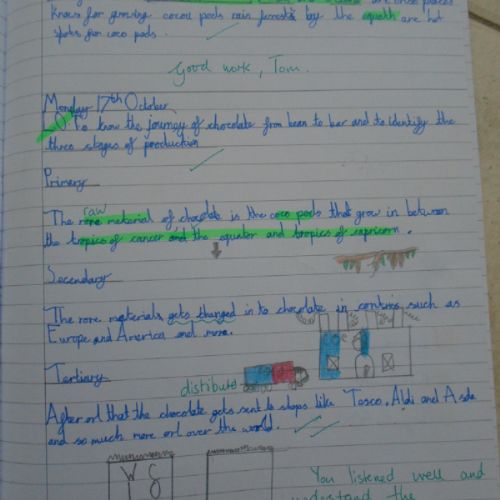 are
known for growing cocou pods rain forrests by the equator are hot
spots for coco pods.
Good work, Tom.
Monday 17th October
L.O. To know the journey of chocolate from bean to bar and to identify the
three stages of porduction
Primary
raw
The rore meterial of chocolate is the coco pods that grow in between
the tropics of cancer and the equator and tropics of capricorn.
Secendary
The rore materials gets changed in to chocolate in contries such as
Europe and America and more.
Tertiary
distribute
After orl that the chocolate gets sent to shops like Tesco, Aldi and Asda
and so much more orl over the world.
You listened well and
understand the